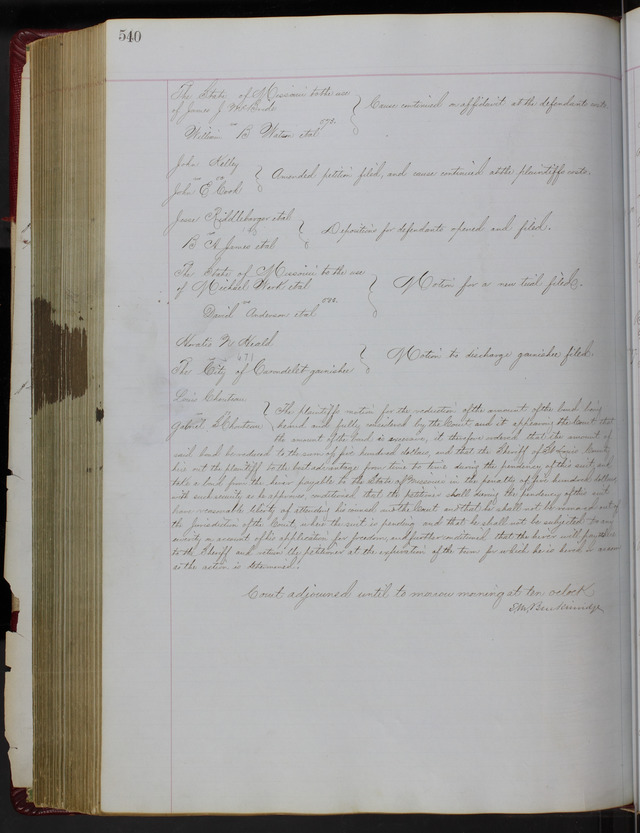 540
The State of Missouri to the use
of James J McBride
vs.
William B Watson etal
Cause continued on affidavit at the defendants costs.
John Kelley
vs
John E Cook
Amended petition filed, and cause continued at the plaintiffs costs.
Jesse Riddlebarger etal
vs
B A James etal
Depositions for defendants opened and filed.
The State of Missouri to the use
of Michael Work etal
vs.
David Anderson etal
Motion for a new trial filed.
Horatio N Heald
vs
The City of Carondelet garnishee
Motion to discharge garnishee filed.
Louis Chouteau
vs
Gabriel S Chouteau
The plaintiffs motion for the reduction of the amount of the bond being
heard and fully considered by the Court and it appearing the Court that
the amount of the bond is excessive, it therefore ordered that the amount of
said bond be reduced to the sum of five hundred dollars, and that the Sheriff of St Louis County
hire out the plaintiff to the best advantage from time to time during the pendency of this suit, and
take a bond from the hirer payable to the State of Missouri in the penalty of five hundred dollars
with such security as he approves, conditioned that the petitioner shall during the pendency of this suit
have reasonable liberty of attending his counsel and the Court and that he shall not be removed out of
the jurisdiction of the Court, where the suit is pending and that he shall not be subjected to any
severity on account of his application for freedom, and further conditioned that the hirer will
to the Sheriff and return the petitioner at the expiration of the term for which he is hired, or as soon
as the action is determined.
Court adjourned until to morrow morning at ten oclock
S M Breckinridge